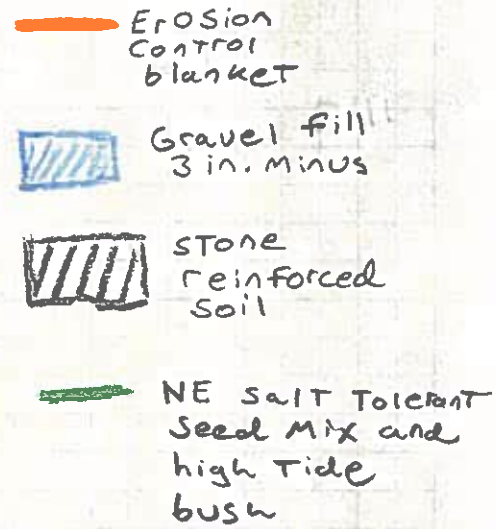 Erosion
Control
blanket
Gravel fill
3 in. minus
STone
reinforced
Soil
NE SalT ToleranT
Seed Mix and
high Tide
bush